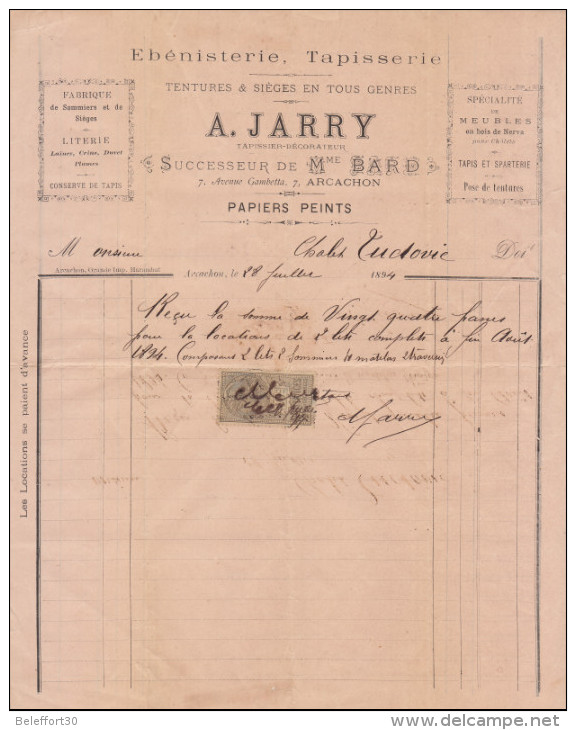 Ebénisterie, Tapisserie
TENTURES & SIÈGES EN TOUS GENRES
A. JARRY
TAPISSIER-DÉCORATEUR
SUCCESSEUR DE Mme BARD
7. Avenue Gambetta, 7, ARCACHON
PAPIERS PEINTS
FABRIQUE
de Sommiers et de
Sièges
LITERIE
Laines, Crins, Duvet
Plumes
CONSERVE DE TAPIS
SPÉCIALITÉ
DE
MEUBLES
en bois de Herva
pour Châlets
TAPIS ET SPARTERIE
Pose de tentures
Monsieur Chalet Ludovic Doit
Arcachon, Grande Imp.
Arcachon, le 28 Juillet 1894
Reçu la somme de Vingt quatre francs
pour la locations de 2 lits complets à fin Août
1894. Composant 2 lits 2 sommiers 4 matelas 2 traversins
AJarry
Les Locations se paient d'avance
Beleffort30
www.delcampe.net